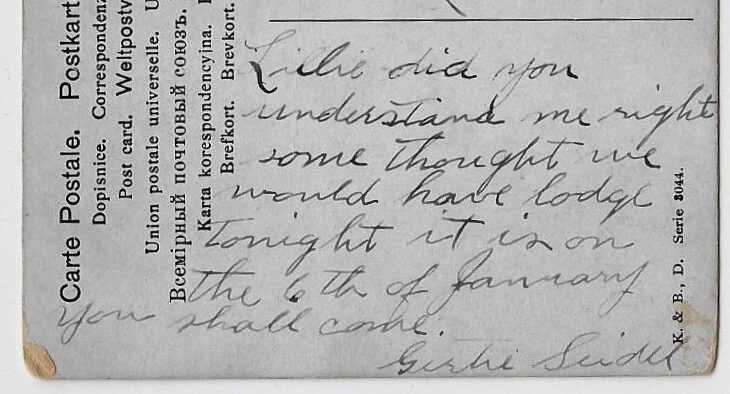 Carte Postale. Postkart
Dopisnice. Correspondenz
Post card. Weltpostv
Union postale universelle. U
Всемірный почтовый союзъ.
Karta korespondencyjna.
Brefkort. Brevkort.
Lillie did you
understand me right
some thought we
would have lodge
tonight it is on
the 6th of January
You shall come.
Gertie Seidel
K. & B., D. Serie 3044.